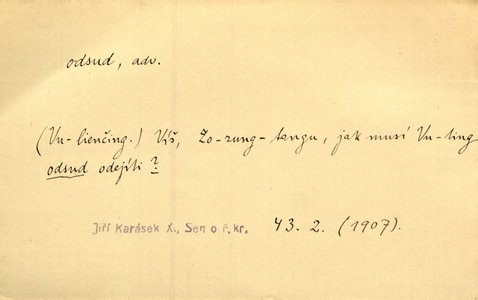 odsud, adv.
(Vu-lienčing.) Víš, Zo-zung-tengu, jak musí Vu-ting
odsud odejíti?
Jiří Karásek X., Sen o ř. kr. 43. 2. (1907).